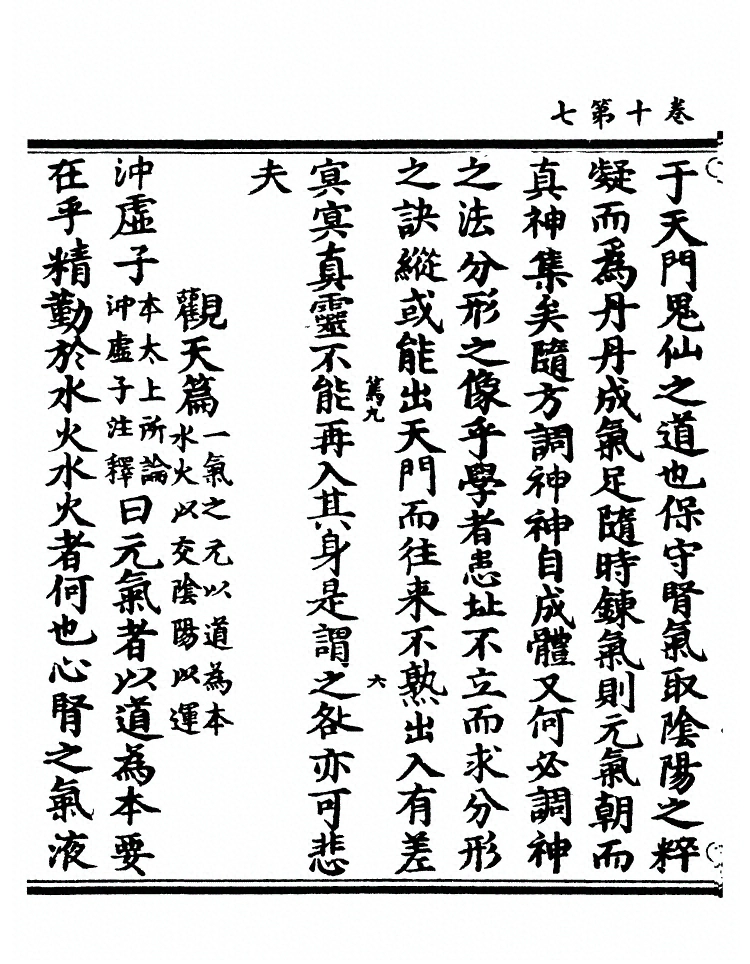 卷十第七
于天門鬼仙之道也保守腎氣取陰陽之粹
凝而爲丹丹成氣足隨時鍊氣則元氣朝而
真神集矣隨方調神神自成體又何必調神
之法分形之像乎學者患址不立而求分形
之訣縱或能出天門而往来不熟出入有差
篤九
六
冥冥真靈不能再入其身是謂之逃亦可悲
夫
觀天篇一氣之元以道為本
水火以交陰陽以運
沖虛子本太上所論
沖虛子注釋曰元氣者以道為本要
在乎精勤於水火水火者何也心腎之氣液